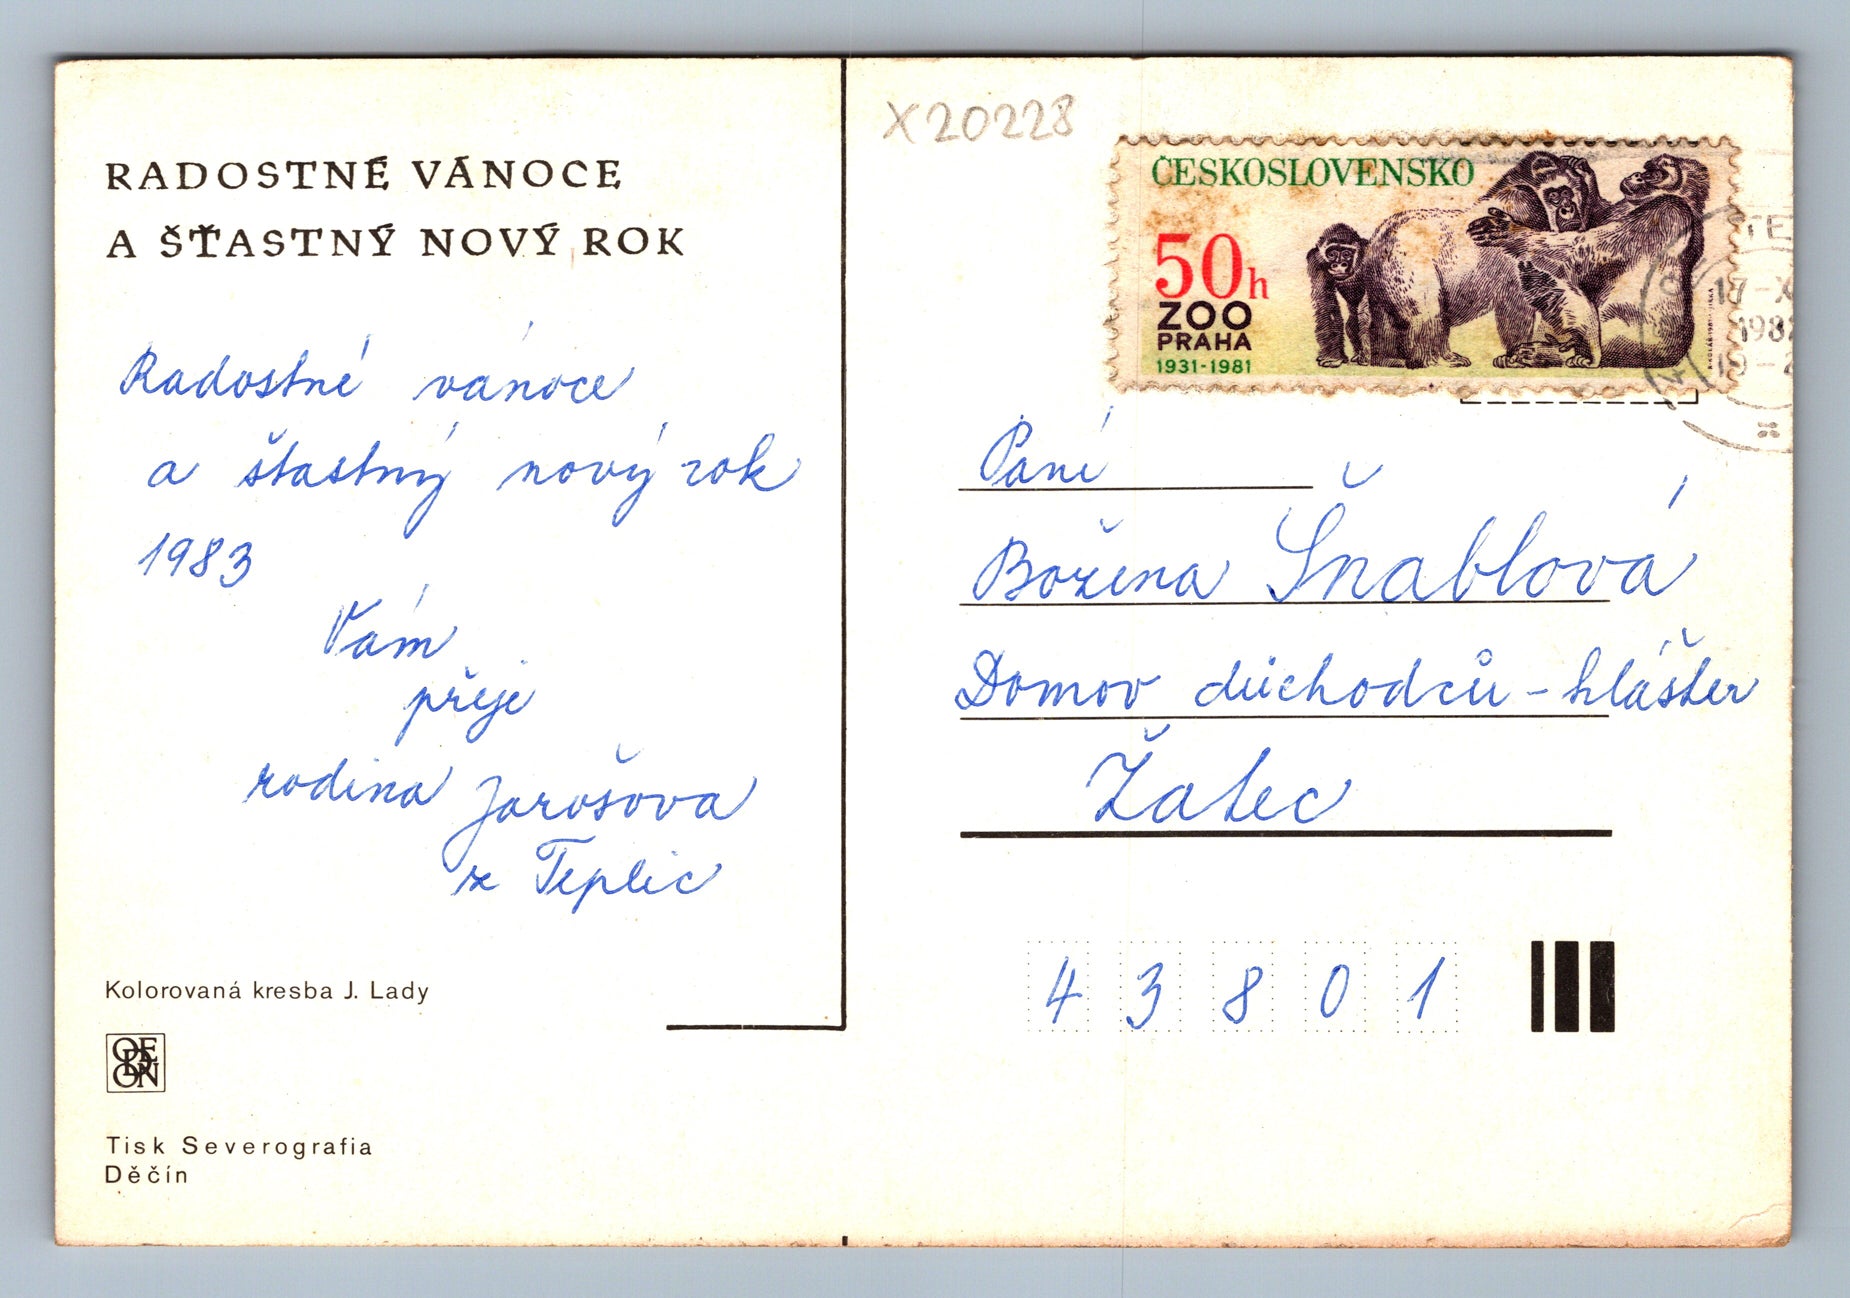 RADOSTNÉ VÁNOCE
A ŠŤASTNÝ NOVÝ ROK
Radostné vánoce
a šťastný nový rok
1983
Vám
přeje
rodina Jarošova
z Teplic
Kolorovaná kresba J. Lady
ODEON
Tisk Severografia
Děčín
X20228
ČESKOSLOVENSKO
50h
ZOO
PRAHA
1931-1981
Paní
Božena Šnáblová
Domov důchodců - klášter
Žatec
43801